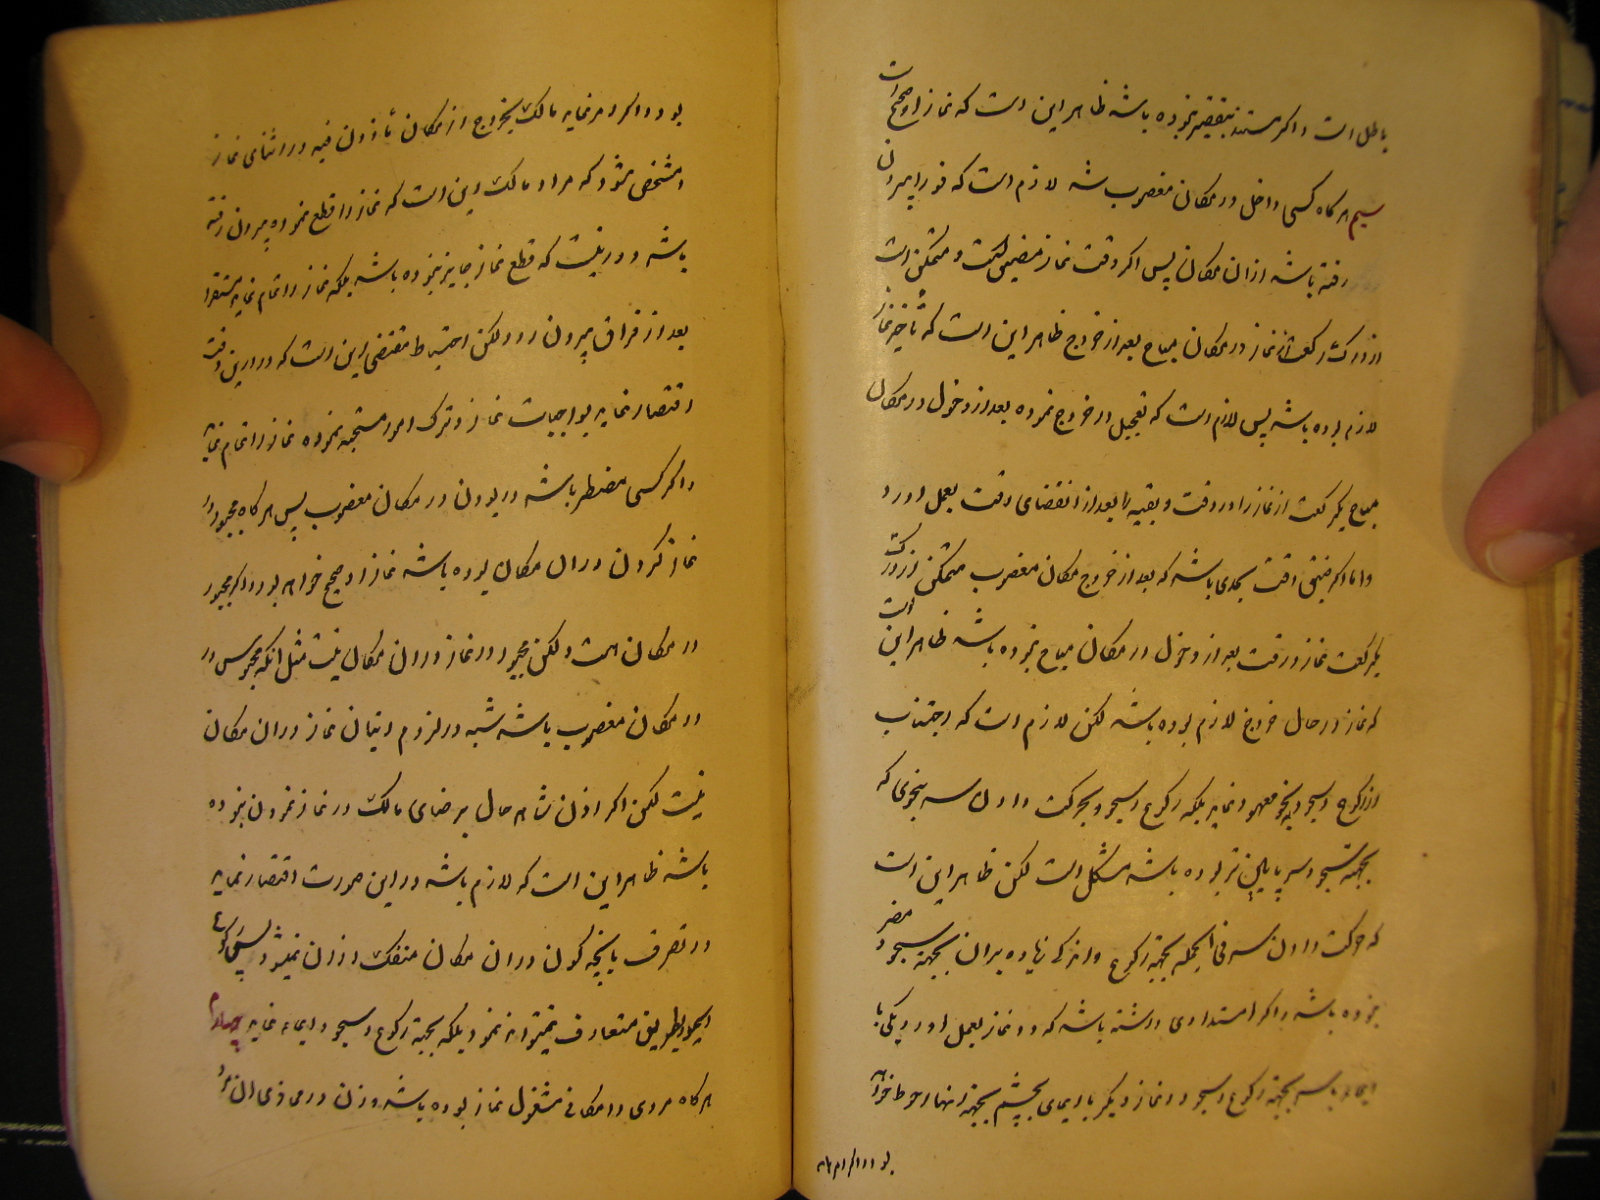 باطل است و اگر مستند بتقصیر نبوده باشد ظاهر این است که نماز او صحیح است
سیم هر گاه کسی داخل در مکان مغصوب شد لازم است که فورا بیرون
رفته باشد از ان مکان پس اگر وقت نماز مضیق نیست و متمکن است
از درک رکعت از نماز در مکان مباح بعد از خروج ظاهر این است که تاخیر نماز
لازم بوده باشد پس لازم است که تعجیل در خروج نموده بعد از دخول در مکان
مباح یکرکعت از نماز را در وقت و بقیه را بعد از انقضای وقت بعمل اورد
و اما اگر ضیق وقت بحدی باشد که بعد از خروج مکان مغصوب متمکن از درک
یکرکعت نماز در وقت بعد از دخول در مکان مباح نبوده باشد ظاهر این است
که نماز در حال خروج لازم بوده باشد لکن لازم است که اجتناب
از رکوع و سجود بنحو معهود نماید بلکه رکوع و سجود بحرکت دادن سر بنحوی که
بجهة سجود سر پایین تر بوده باشد مشکل است لکن ظاهر این است
که حرکت دادن سر فی الجمله بجهة رکوع و اندکی زیاده بران بجهة سجود مضر
نبوده باشد و اگر امتدادی داشته باشد که دو نماز بعمل اورد یکی با
ایماء بسر بجهة رکوع و سجود و نماز دیگر با ایمای بچشم بجهة انها احوط خواهد
بود و اگر امر نماید
بود و اگر امر نماید مالک بخروج از مکان ماذون فیه در اثنای نماز
و مشخص شود که مراد مالک این است که نماز را قطع نموده بیرون رفته
باشد دور نیست که قطع نماز جایز نبوده باشد بلکه نماز را تمام نماید مستقرا
بعد از فراق بیرون رود و لکن احتیاط مقتضی این است که در این وقت
اقتصار نماید بواجبات نماز و ترک امور مستحبه نموده نماز را تمام نماید
و اگر کسی مضطر باشد در بودن در مکان مغصوب پس هر گاه مجبور در
نماز کردن در ان مکان بوده باشد نماز او صحیح خواهد بود و اگر مجبور
در مکان هست و لکن مجبور در نماز در ان مکان نیست مثل انکه محبوس در
در مکان مغصوب باشد شبه در لزوم اتیان نماز در ان مکان
نیست لکن اگر اذن شاهد حال بر رضای مالک در نماز نمودن نبوده
باشد ظاهر این است که لازم باشد در این صورت اقتصار نماید
در تصرف بانچه کون در ان مکان منفک از ان نمیشود پس رکوع
و سجود بطریق متعارف نمیتواند نمود بلکه بجهة رکوع و سجود ایماء نماید چهارم
هر گاه مردی در مکانی مشغول نماز بوده باشد و زن در محاذی ان مرد